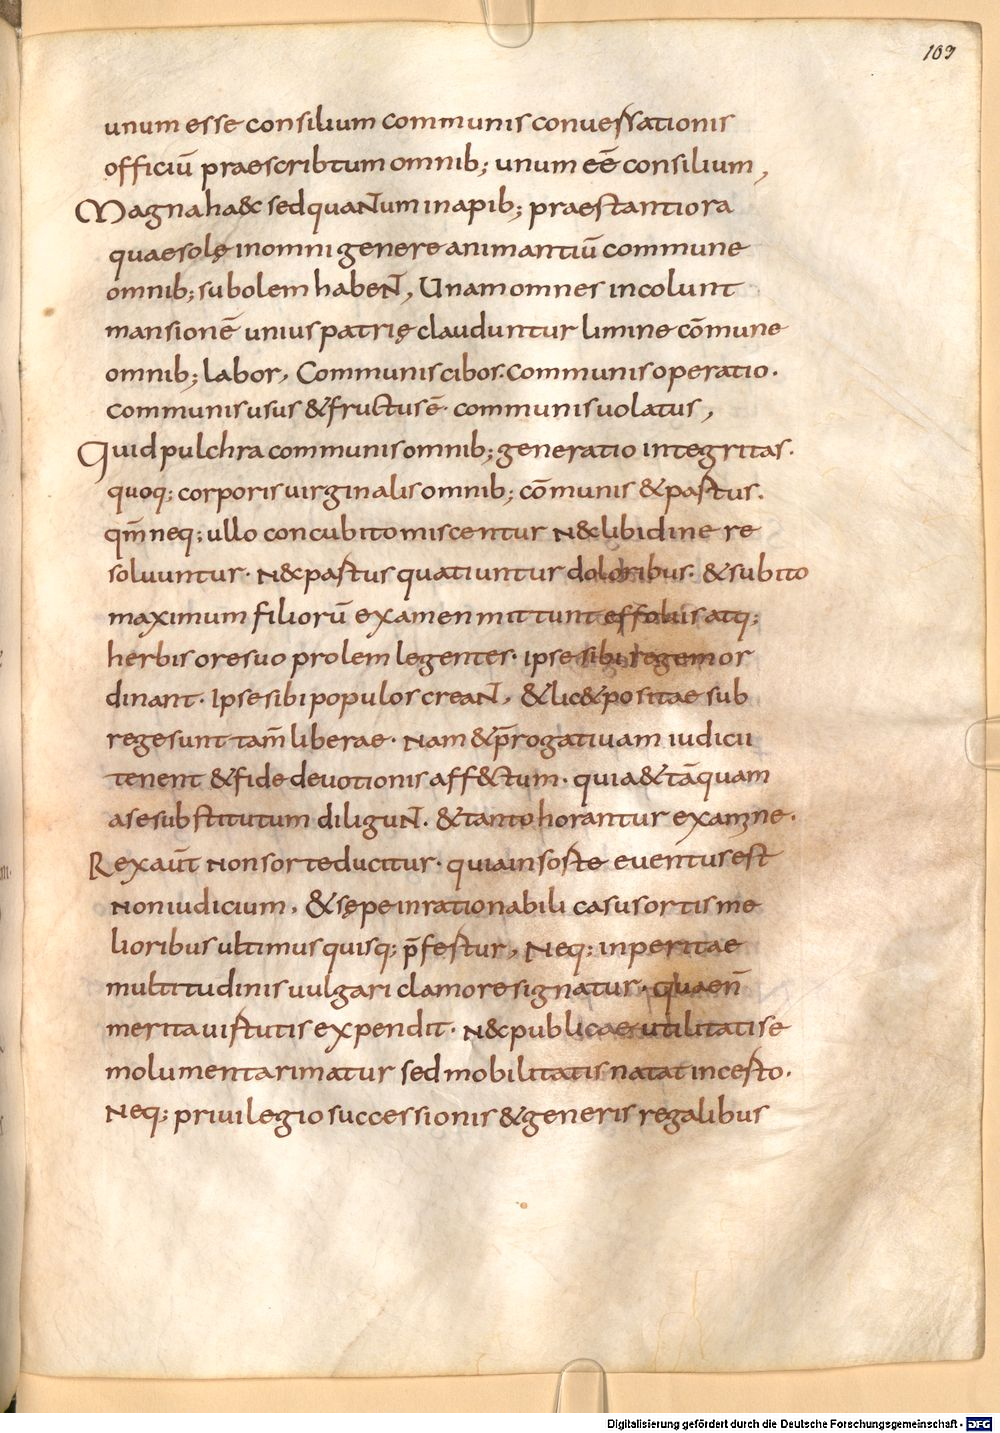 109
unum esse consilium communis conuersationis
officiū praescribtum omnib; unum eē consilium,
Magna ha& sed quaNum in apib; praestantiora
quae solę in omni genere animantiū commune
omnib; subolem habeN, Unam omnes incolunt
mansionē unius patrię clauduntur limine cōmune
omnib; labor, Communis cibos. communis operatio.
communis usus & fructus ē. communis uolatus,
Quid pulchra communis omnib; generatio integritas.
quoq; corporis uirginalis omnib; cōmunis & partus.
qm̄ neq; ullo concubito miscentur n& libidine re
soluuntur. n& partus quatiuntur doloribus. & subito
maximum filiorū examen mittunt effoliis atq;
herbis ore suo prolem legentes. ipse sibi regem or
dinant. Ipse sibi populos creaN, & lic& positae sub
rege sunt tam̄ liberae. Nam & p̄rogatiuam iudicii
tenent & fide deuotionis aff&tum. quia & tāquam
a se substitutum diliguN. & tanto horantur examne.
Rex aūt non sorte ducitur. quia in sorte euentus est
non iudicium, & sępe inrationabili casu sortis me
lioribus ultimus quisq; p̄fertur, Neq; inperitae
multitudinis uulgari clamore signatur. quae n̄
merita uirtutis expendit. n& publicae utilitatis e
molumenta rimatur sed mobilitatis natat incerto.
Neq; priuilegio successionis & generis regalibus
Digitalisierung gefördert durch die Deutsche Forschungsgemeinschaft - DFG